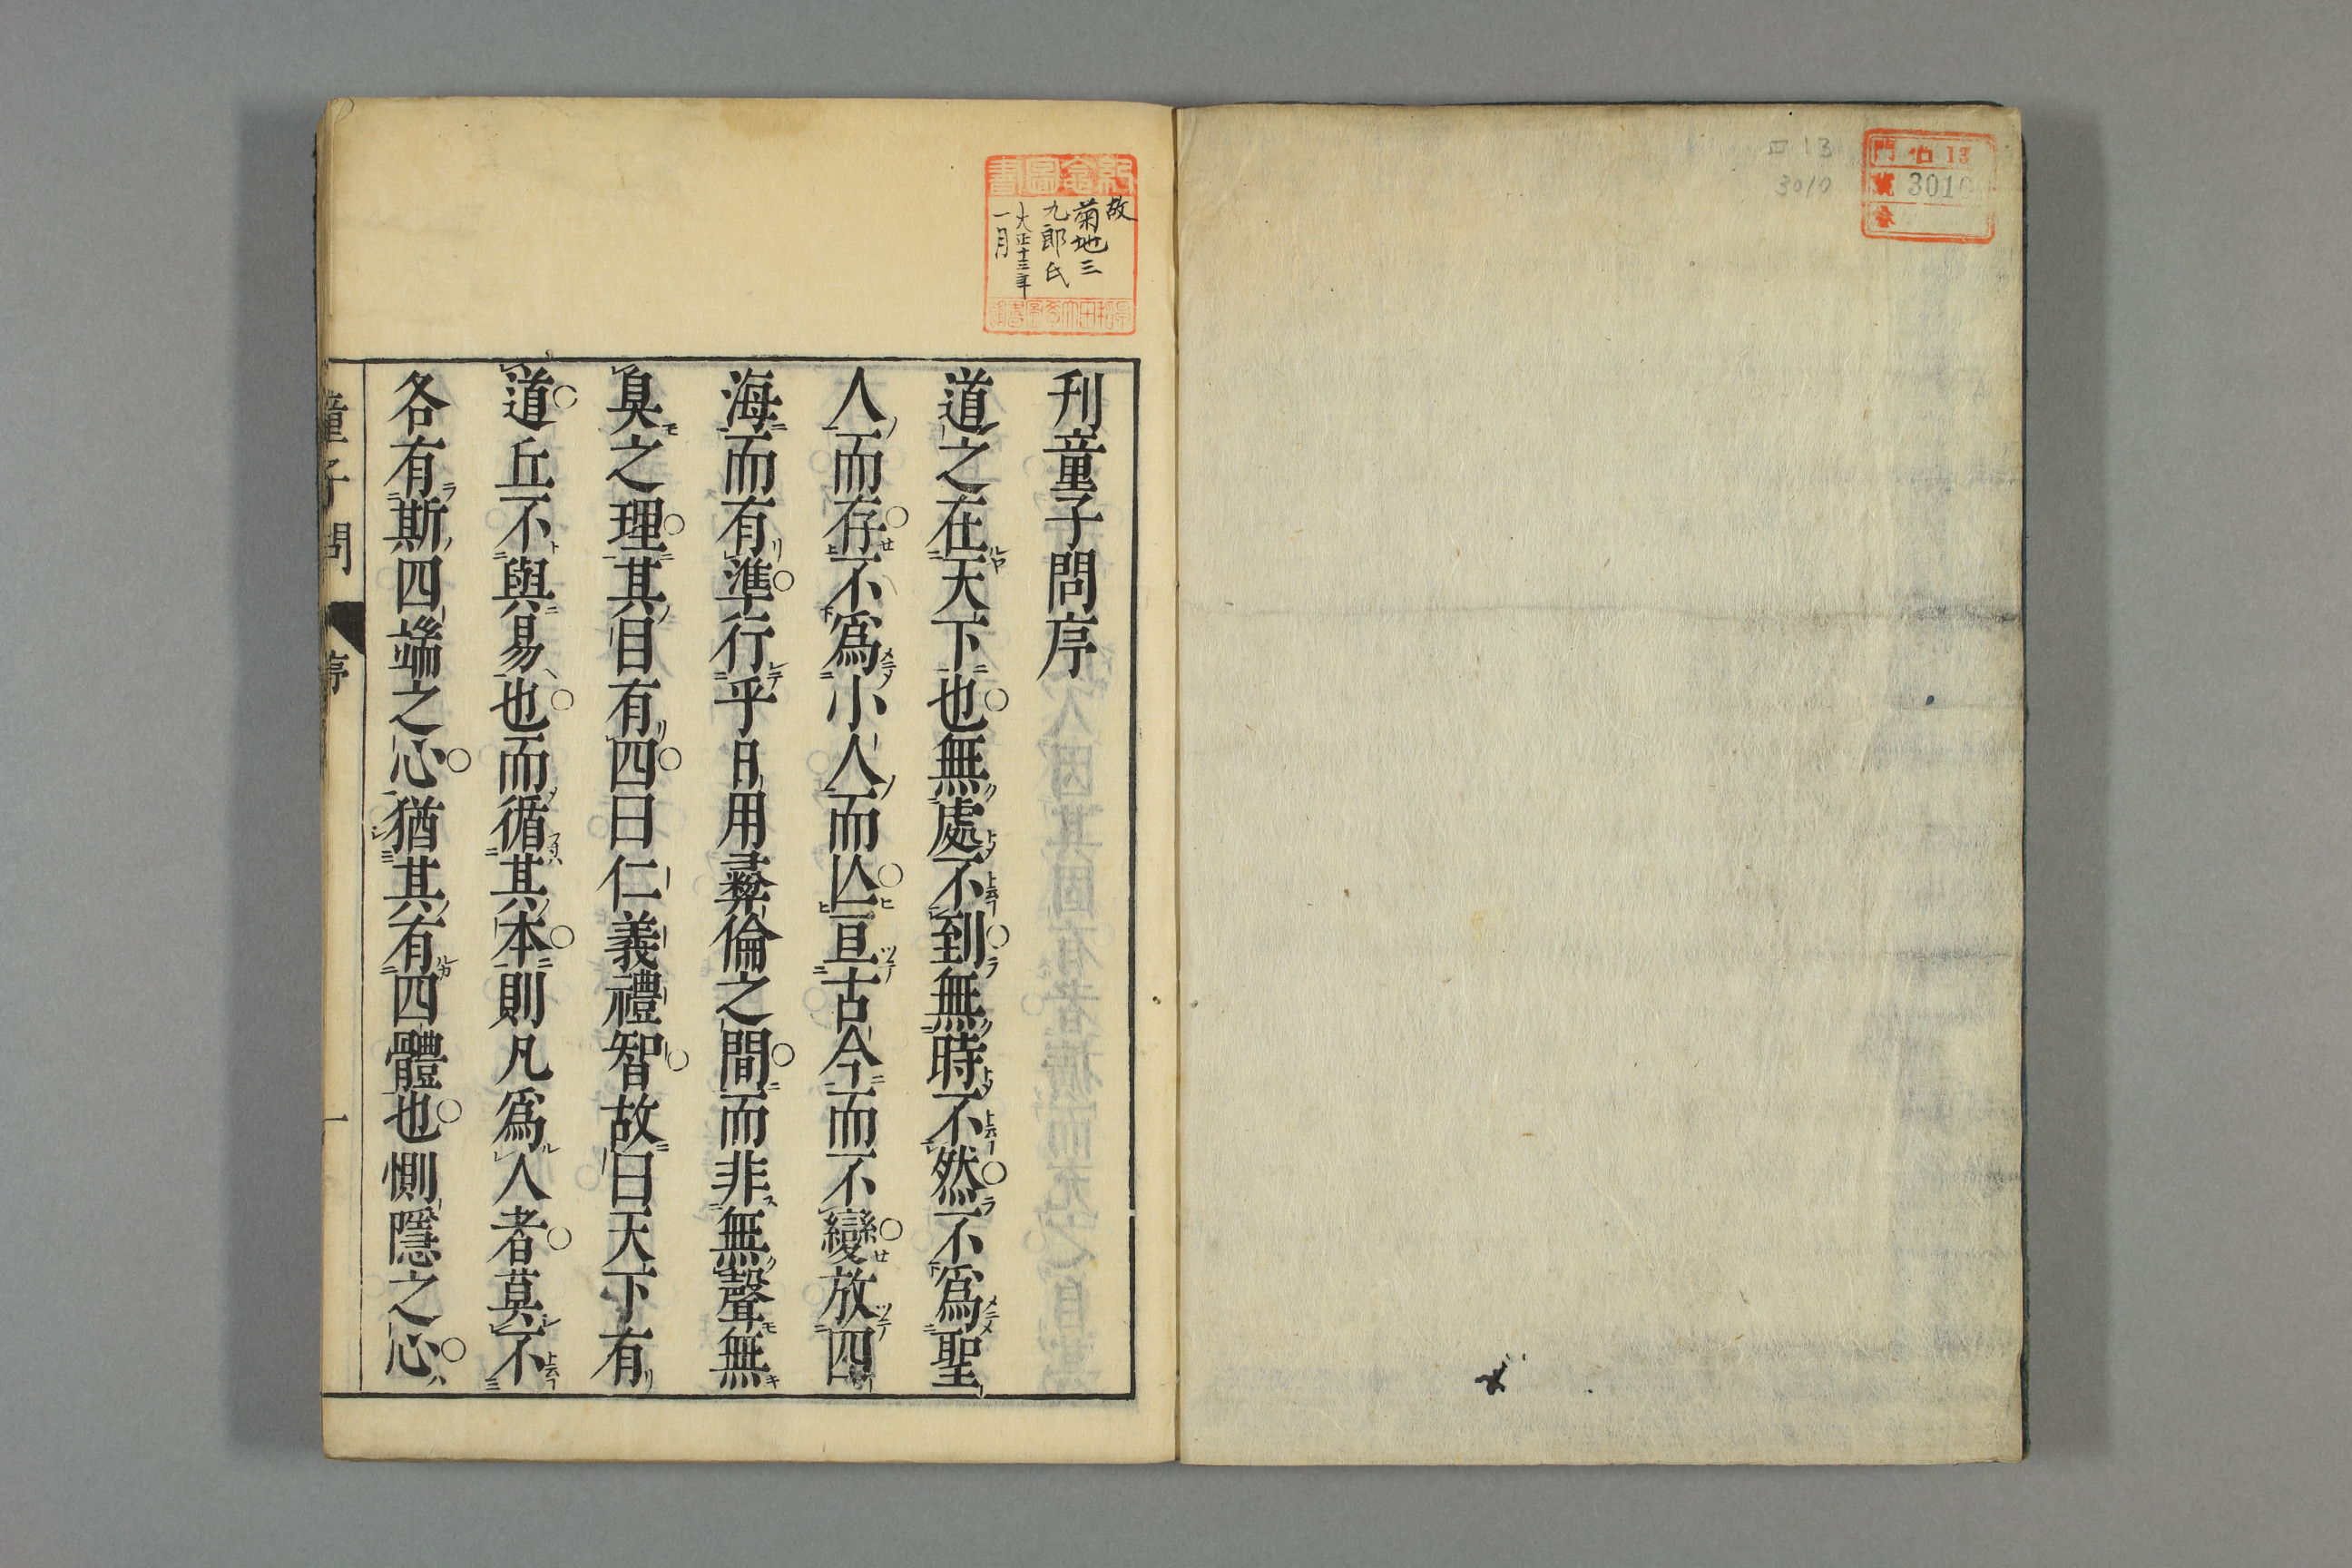 ロ13
3010
門 ロ 13
號 3010
卷
故
菊地三
九郎氏
大正十三年
一月
刊童子問序
道之在天下也無處不到無時不然不爲聖
人而存不爲小人而亾亘古今而不變放四
海而有準行乎日用彛倫之間而非無聲無
臭之理其目有四曰仁義禮智故曰天下有
道丘不與易也而循其本則凡爲人者莫不
各有斯四端之心猶其有四體也惻隱之心
童子問 序 一